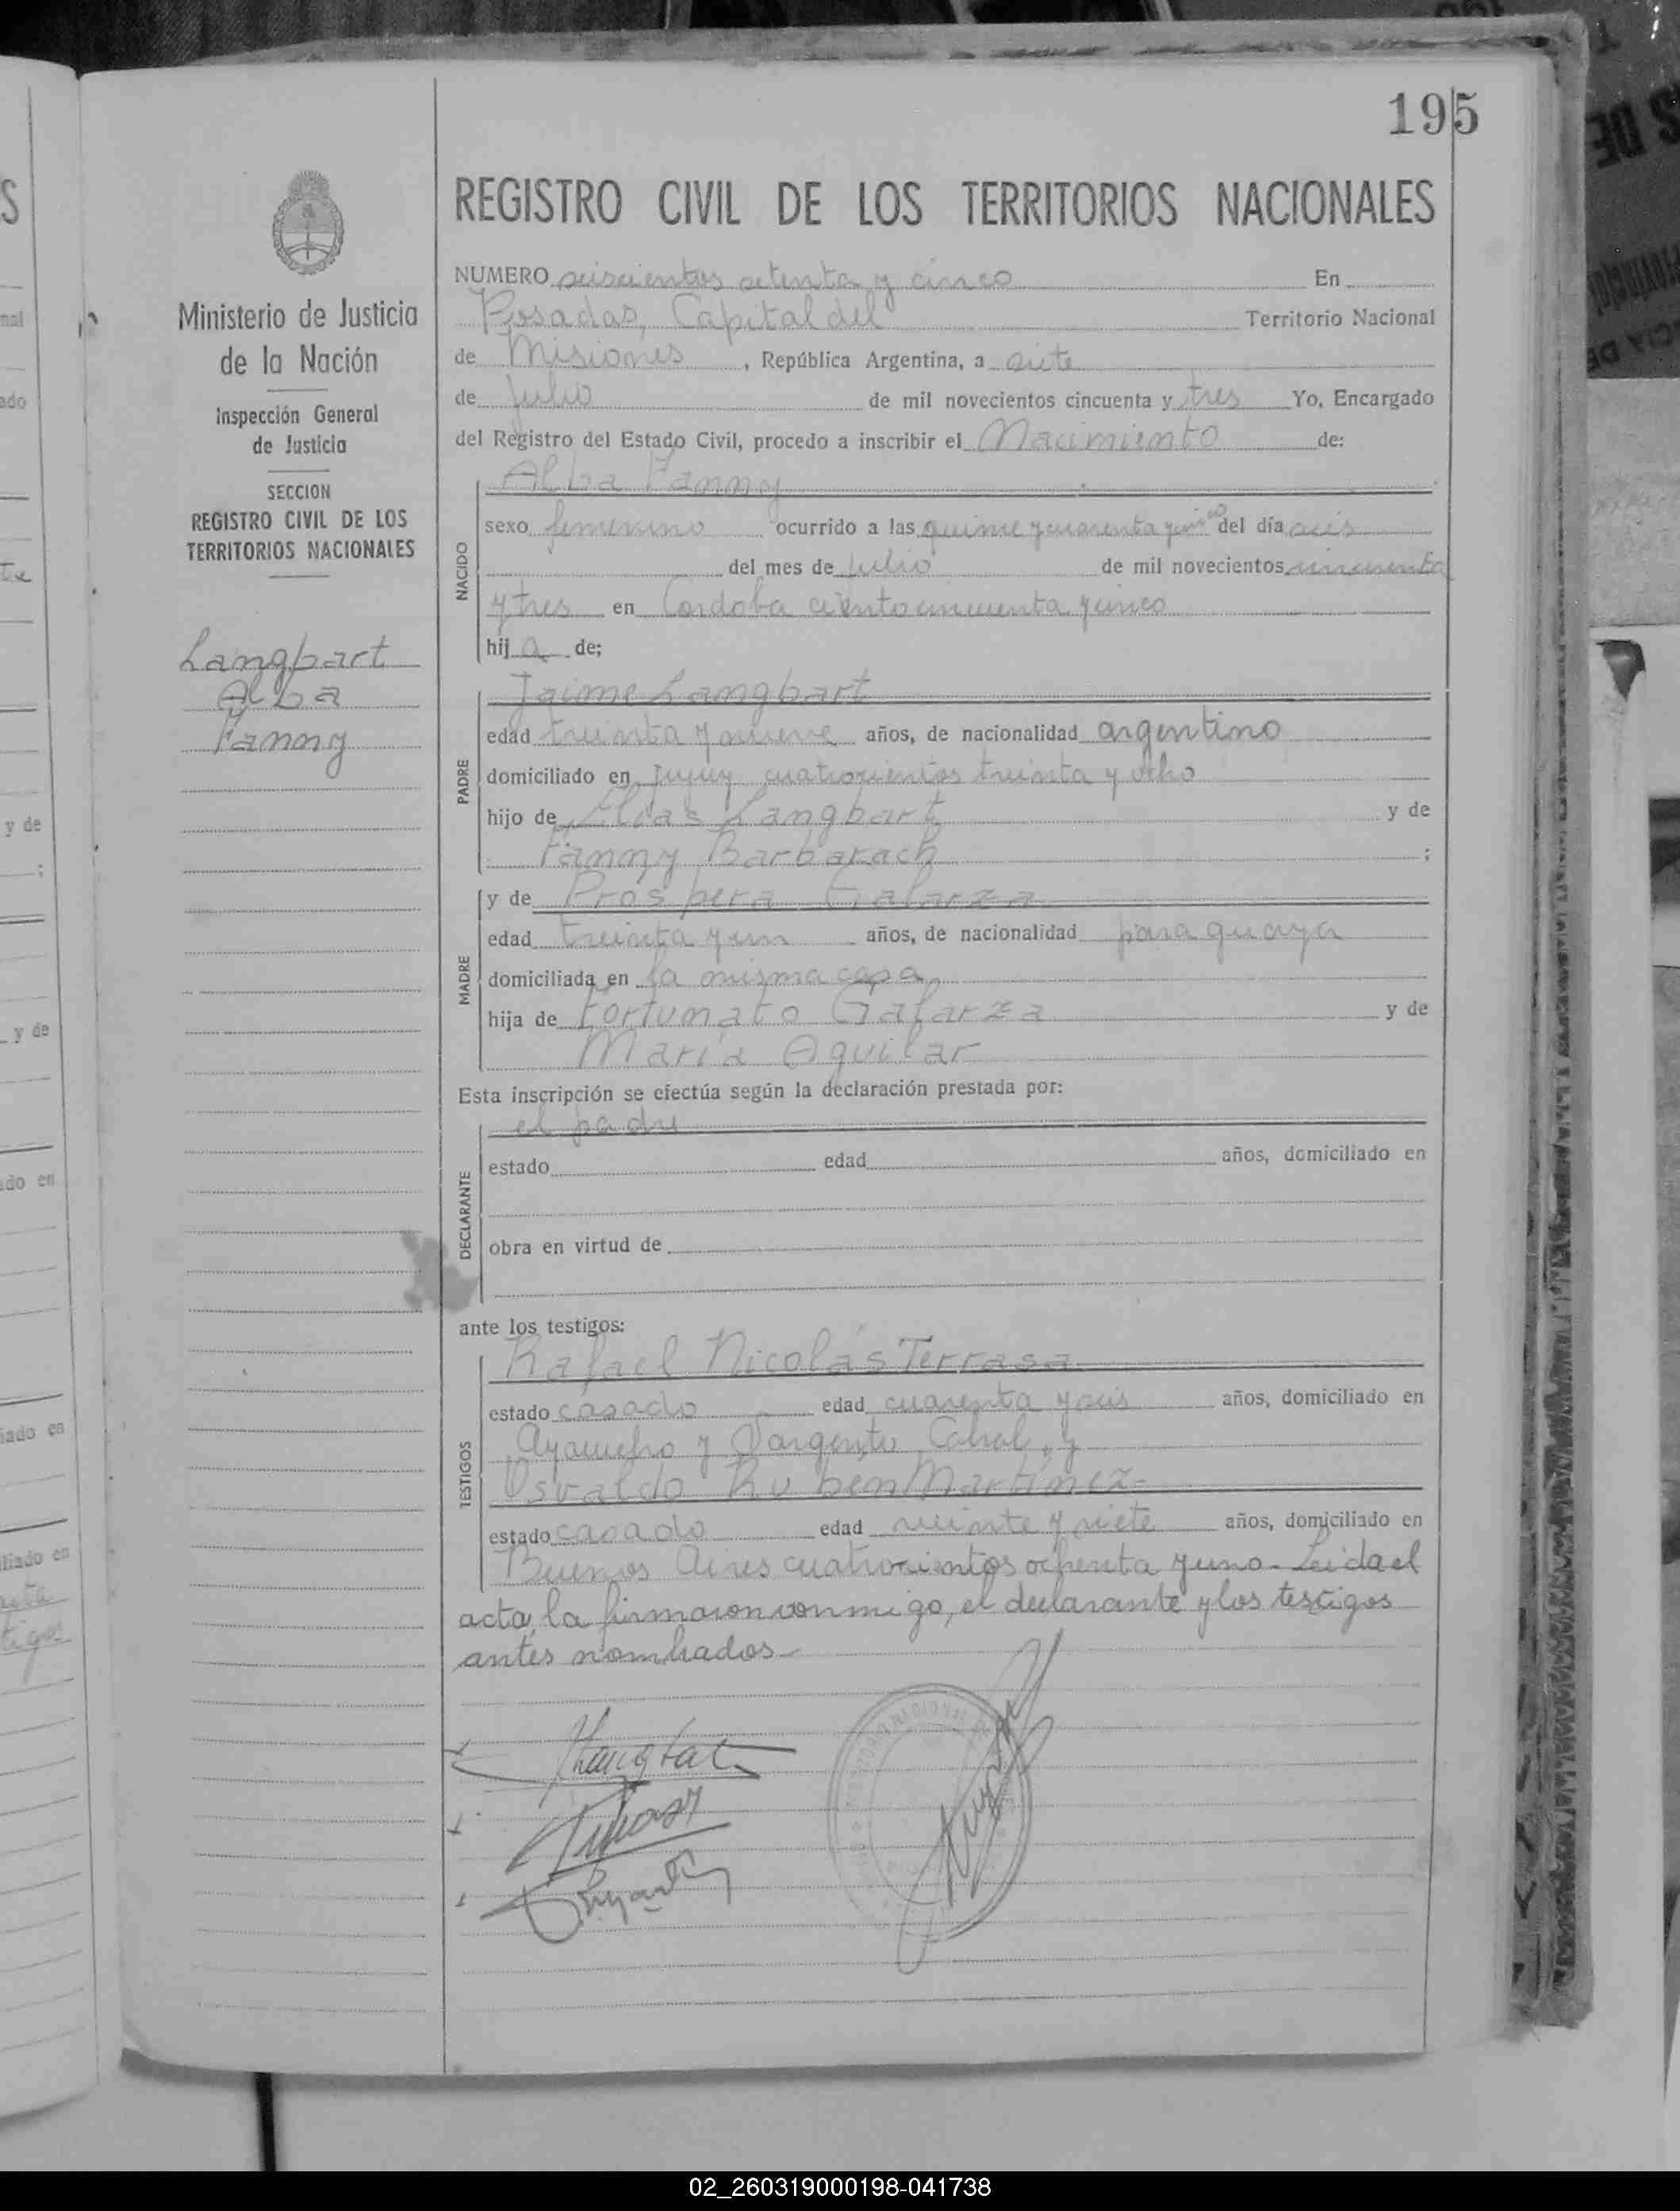 195
REGISTRO CIVIL DE LOS TERRITORIOS NACIONALES
Ministerio de Justicia
de la Nación
Inspección General
de Justicia
SECCION
REGISTRO CIVIL DE LOS
TERRITORIOS NACIONALES
Langbart
Alba
Fanny
NUMERO seiscientos setenta y cinco En
Posadas, Capital del Territorio Nacional
de Misiones, República Argentina, a siete
de Julio de mil novecientos cincuenta y tres Yo, Encargado
del Registro del Estado Civil, procedo a inscribir el Nacimiento de:
NACIDO
Alba Fanny
sexo femenino ocurrido a las quince y cuarenta y cinco del día seis
del mes de Julio de mil novecientos cincuenta
y tres en Cordoba ciento cincuenta y cinco
hij a de;
PADRE
Jaime Langbart
edad treinta y nueve años, de nacionalidad argentino
domiciliado en Jujuy cuatrocientos treinta y ocho
hijo de Elias Langbart y de
Fanny Barbarach ;
MADRE
y de Prospera Galarza
edad treinta y un años, de nacionalidad paraguaya
domiciliada en la misma casa
hija de Fortunato Galarza y de
María Aguilar
Esta inscripción se efectúa según la declaración prestada por:
DECLARANTE
el padre
estado edad años, domiciliado en
obra en virtud de
ante los testigos:
TESTIGOS
Rafael Nicolás Terrasa
estado casado edad cuarenta y seis años, domiciliado en
Ayacucho y Sargento Cabral, y
Osvaldo Rubén Martínez
estado casado edad veinte y siete años, domiciliado en
Buenos Aires cuatrocientos ochenta y uno - Leida el
acta, la firmaron conmigo, el declarante y los testigos
antes nombrados
02_260319000198-041738